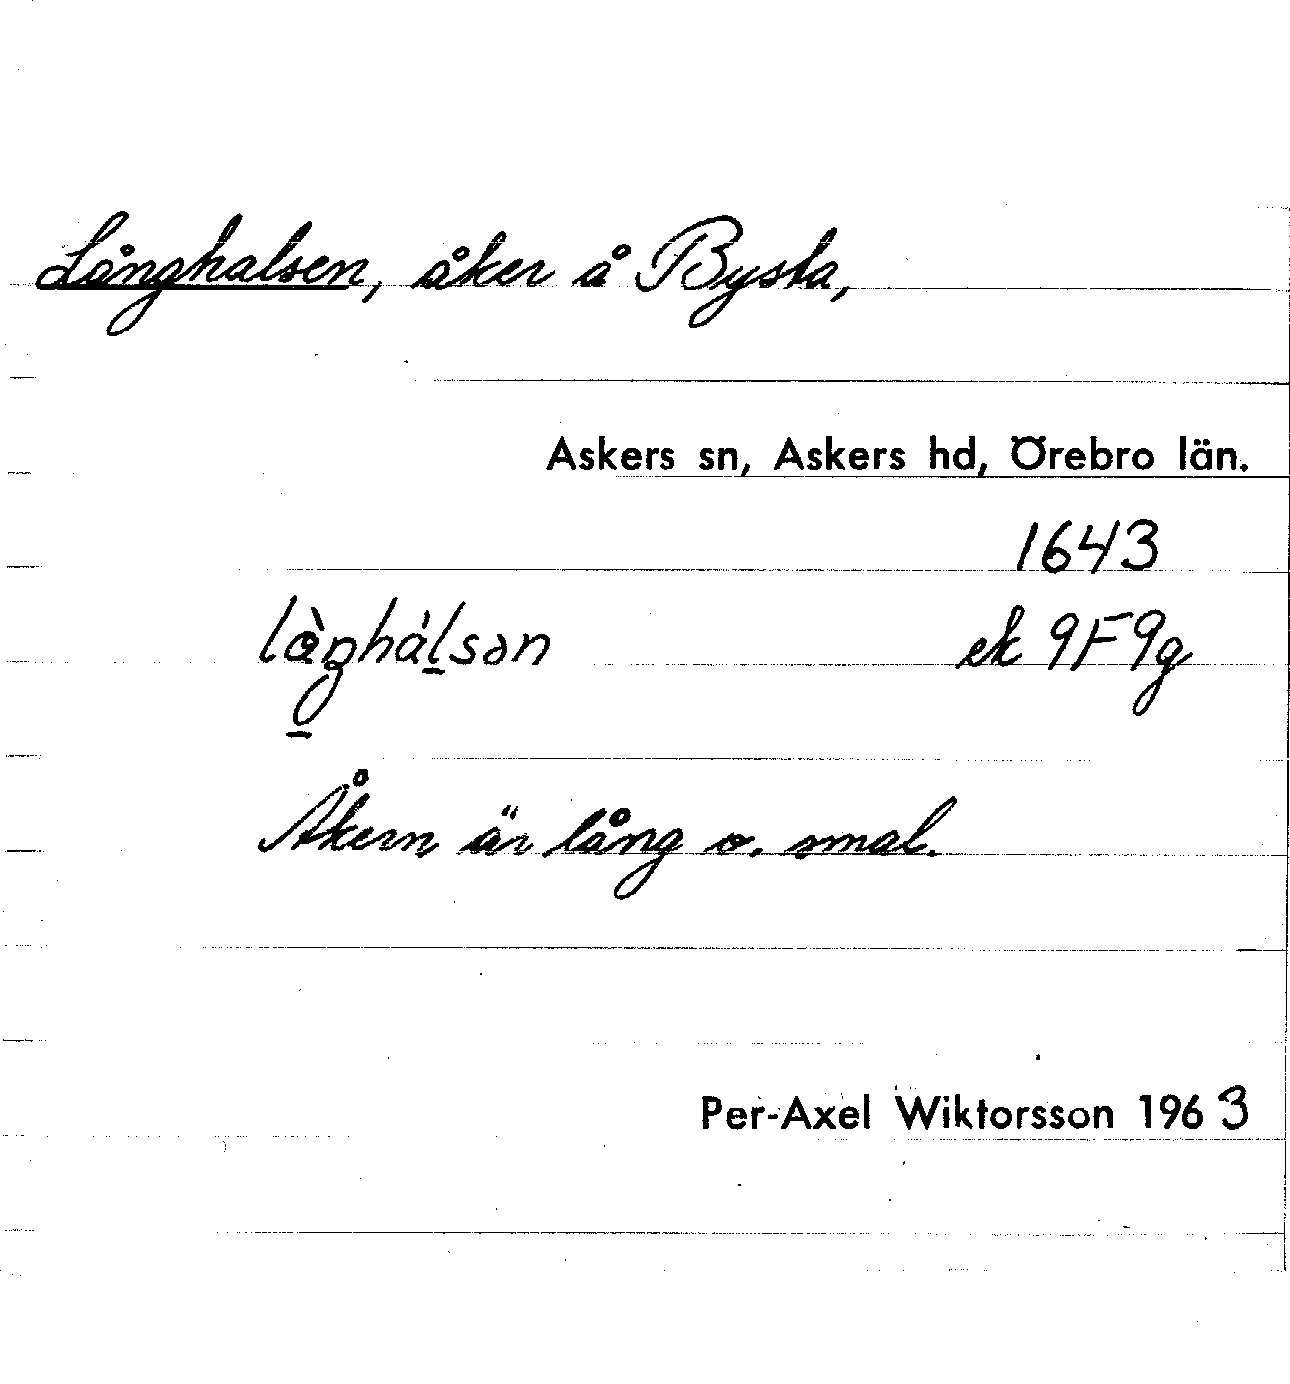 Långhalsen, åker å Bysta,
Askers sn, Askers hd, Örebro län.
1643
ek 9F9g
Åkern är lång o. smal.
Per-Axel Wiktorsson 1963